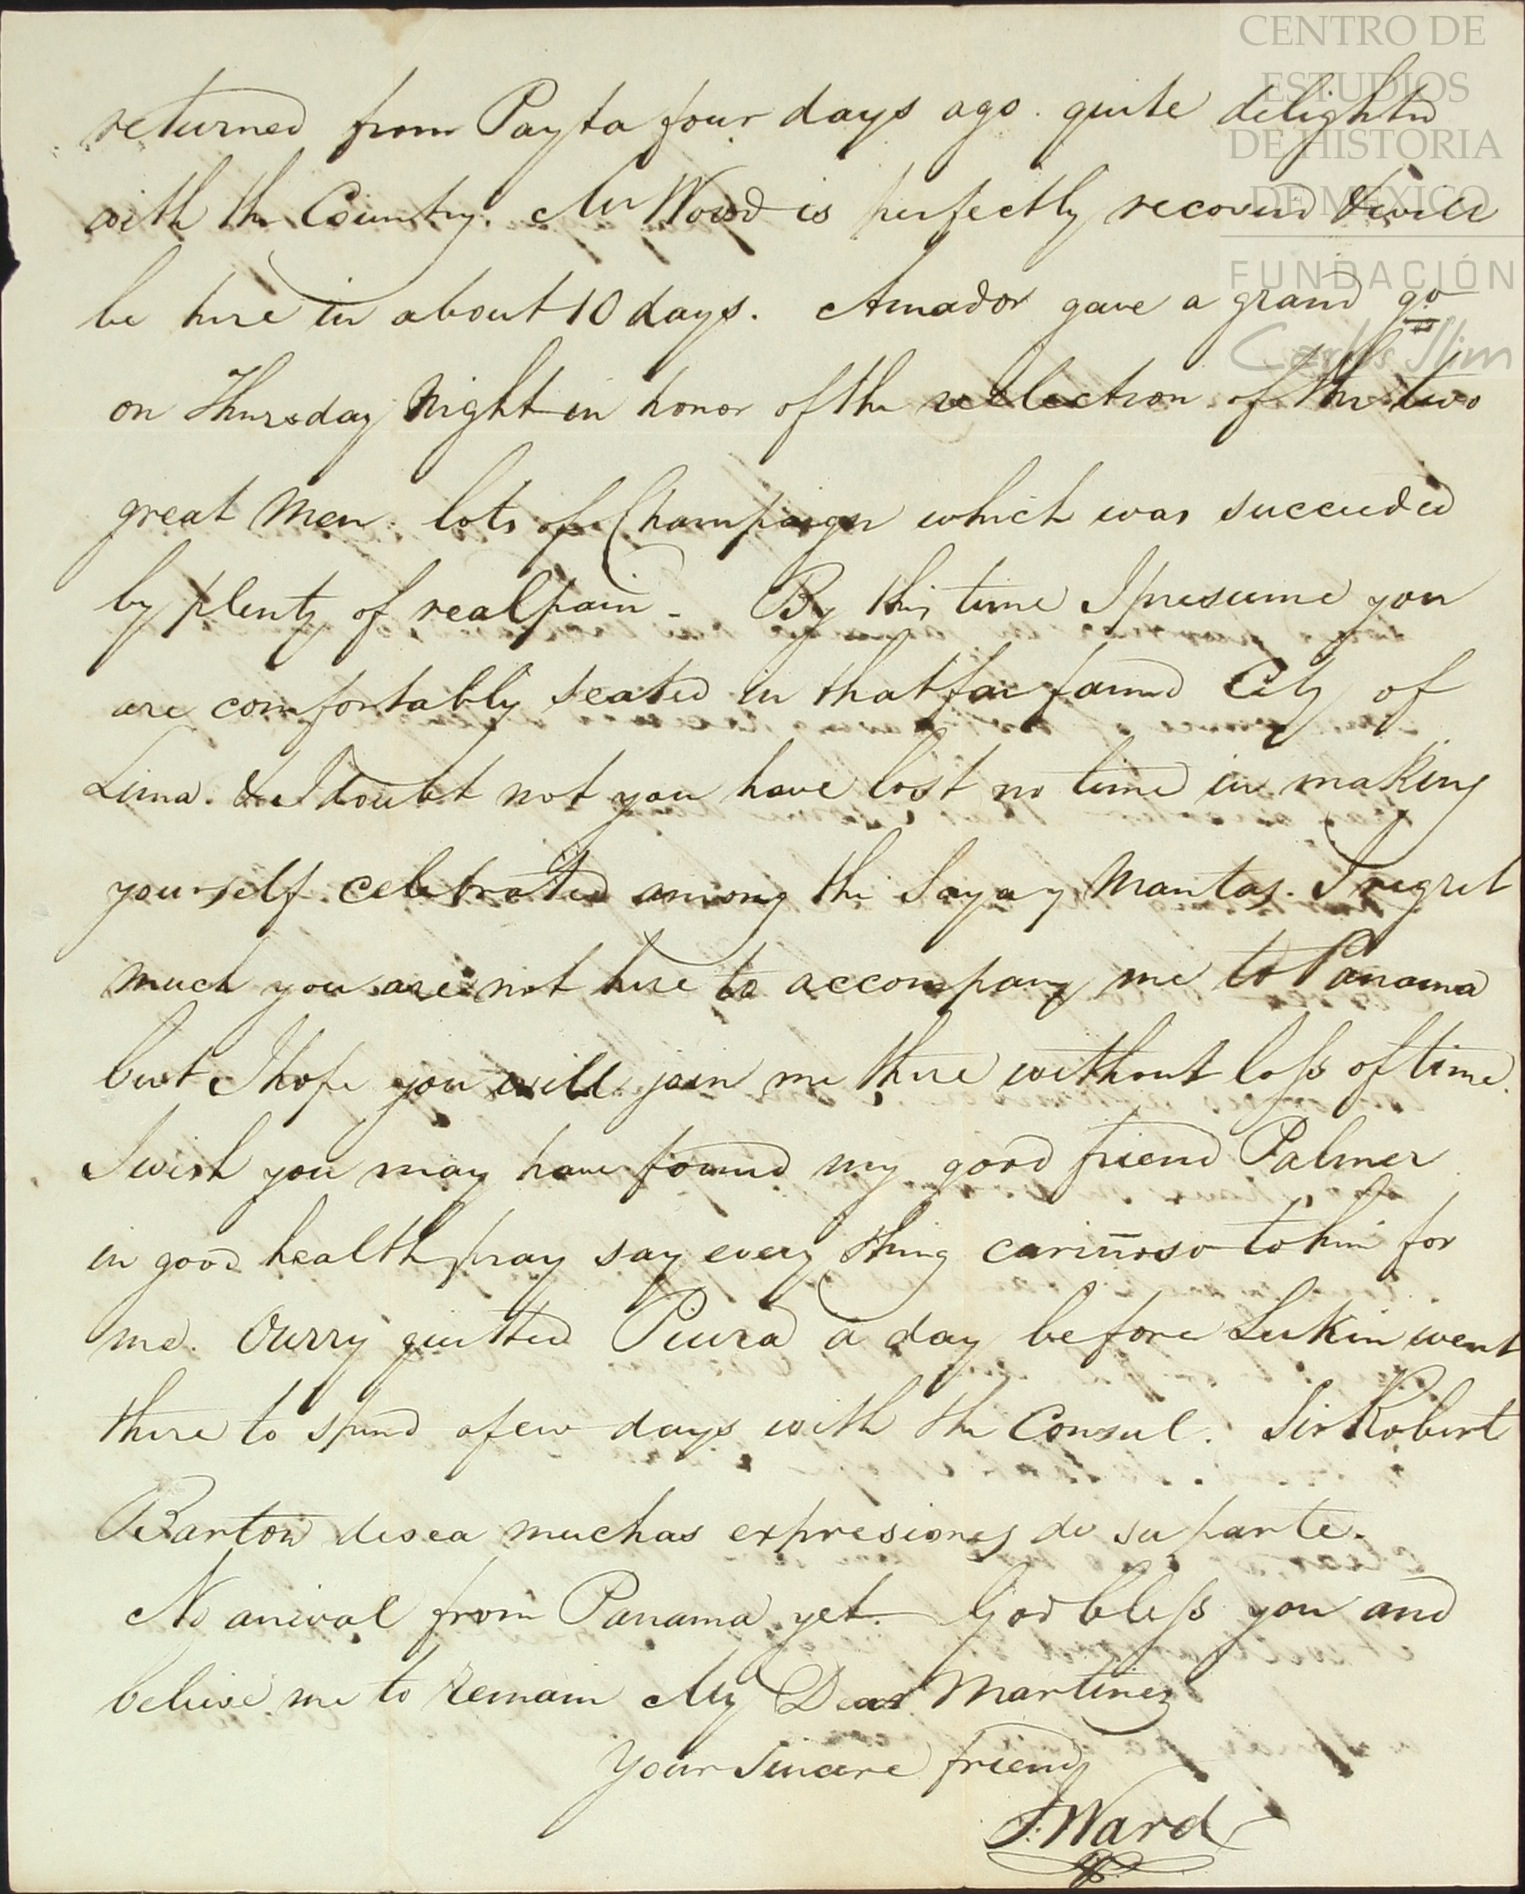 CENTRO DE
ESTUDIOS
DE HISTORIA
DE MÉXICO
FUNDACIÓN
Carlos Slim
returned from Payta four days ago. quite delighted
with the Country. Mr Wood is perfectly recoverd & will
be here in about 10 days. Amador gave a grand go
on Thursday Night in honor of the reelection of the two
great Men. lots of Champaign which was succeeded
by plenty of real pain - By this time I presume you
are comfortably seated in that far famed City of
Lima. & I doubt not you have lost no time in making
yourself celebrated among the Saya y Mantas. I regret
much you are not here to accompany me to Panama
but I hope you will join me there without loss of time.
I wish you may have found my good friend Palmer
in good health pray say every thing cariñoso to him for
me. Ourry quitted Piura a day before Lukin went
there to spend a few days with the Consul. Sir Robert
Barton desea muchas expresiones de su parte.
No arrival from Panama yet. God bless you and
believe me to remain My Dear Martinez
Your Sincere friend
J. Ward